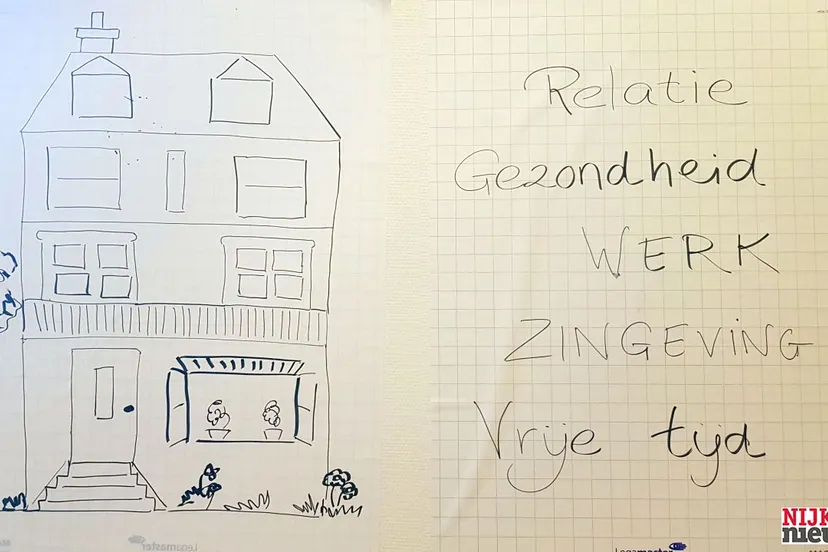 Relatie
Gezondheid
WERK
ZINGEVING
Vrije tijd
Legamaster
Legamaster
NIJK
nieu